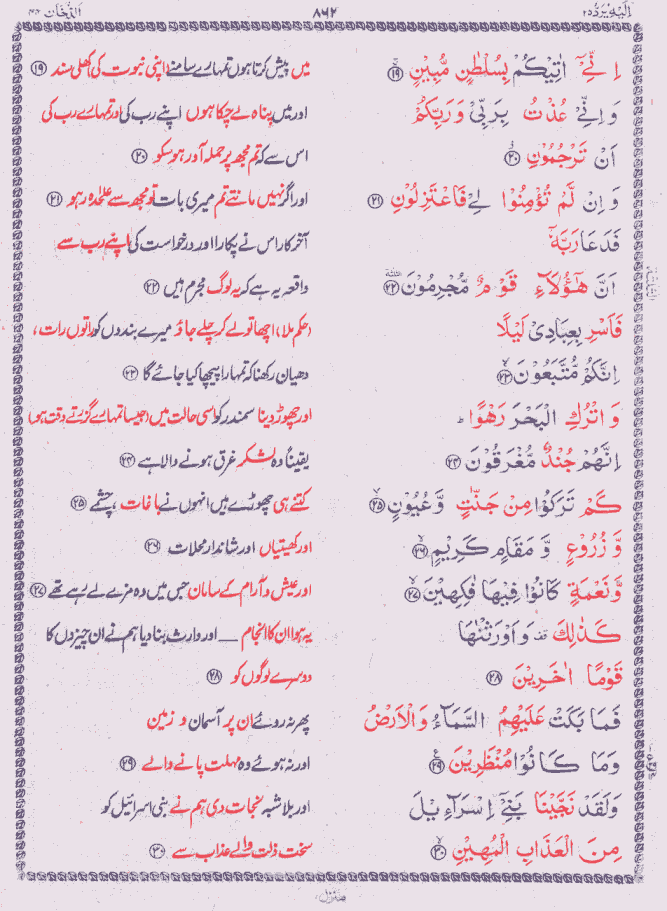 اِلَيْهِ يُرَدُّ ٢٥ ٨٦٢ اَلدُّخَان ٤٤
اِنِّیْۤ اٰتِيْكُمْ بِسُلْطٰنٍ مُّبِيْنٍ ۚ ﴿۱۹﴾ میں پیش کرتا ہوں تمہارے سامنے (اپنی نبوت کی) کھلی سند ﴿۱۹﴾
وَ اِنِّیْ عُذْتُ بِرَبِّیْ وَ رَبِّكُمْ اور میں پناہ لے چکا ہوں اپنے رب کی اور تمہارے رب کی
اَنْ تَرْجُمُوْنِ ۚ ﴿۲۰﴾ اس سے کہ تم مجھ پر حملہ آور ہو سکو ﴿۲۰﴾
وَ اِنْ لَّمْ تُؤْمِنُوْا لِیْ فَاعْتَزِلُوْنِ ﴿۲۱﴾ اور اگر نہیں مانتے تم میری بات تو مجھ سے علیٰحدہ رہو ﴿۲۱﴾
فَدَعَا رَبَّهٗۤ آخر کار اس نے پکارا اور درخواست کی اپنے رب سے
اَنَّ هٰۤؤُلَآءِ قَوْمٌ مُّجْرِمُوْنَ ﴿۲۲﴾ واقعہ یہ ہے کہ یہ لوگ مجرم ہیں ﴿۲۲﴾
فَاَسْرِ بِعِبَادِیْ لَيْلًا (حکم ملا) اچھا تو لے کر چلے جاؤ میرے بندوں کو راتوں رات،
اِنَّكُمْ مُّتَّبَعُوْنَ ۙ ﴿۲۳﴾ دھیان رکھنا کہ تمہارا پیچھا کیا جائے گا ﴿۲۳﴾
وَ اتْرُكِ الْبَحْرَ رَهْوًا ؕ اور چھوڑ دینا سمندر کو اسی حالت میں (جیسا تمہارے گزرتے وقت ہو)
اِنَّهُمْ جُنْدٌ مُّغْرَقُوْنَ ﴿۲۴﴾ یقیناً وہ لشکر غرق ہونے والا ہے ﴿۲۴﴾
كَمْ تَرَكُوْا مِنْ جَنّٰتٍ وَّ عُيُوْنٍ ۙ ﴿۲۵﴾ کتنے ہی چھوڑے ہیں انہوں نے باغات ، چشمے ﴿۲۵﴾
وَّ زُرُوْعٍ وَّ مَقَامٍ كَرِيْمٍ ۙ ﴿۲۶﴾ اور کھیتیاں اور شاندار محلات ﴿۲۶﴾
وَّ نَعْمَةٍ كَانُوْا فِيْهَا فٰكِهِيْنَ ۙ ﴿۲۷﴾ اور عیش و آرام کے سامان جس میں وہ مزے لے رہے تھے ﴿۲۷﴾
كَذٰلِكَ ۟ وَ اَوْرَثْنٰهَا یہ ہوا ان کا انجام — اور وارث بنا دیا ہم نے ان چیزوں کا
قَوْمًا اٰخَرِيْنَ ﴿۲۸﴾ دوسرے لوگوں کو ﴿۲۸﴾
فَمَا بَكَتْ عَلَيْهِمُ السَّمَآءُ وَ الْاَرْضُ پھر نہ روئے ان پر آسمان و زمین
وَ مَا كَانُوْا مُنْظَرِيْنَ ﴿۲۹﴾ اور نہ ہوئے وہ مہلت پانے والے ﴿۲۹﴾
وَ لَقَدْ نَجَّيْنَا بَنِیْۤ اِسْرَآءِيْلَ اور بلاشبہ نجات دی ہم نے بنی اسرائیل کو
مِنَ الْعَذَابِ الْمُهِيْنِ ۙ ﴿۳۰﴾ سخت ذلت والے عذاب سے ﴿۳۰﴾